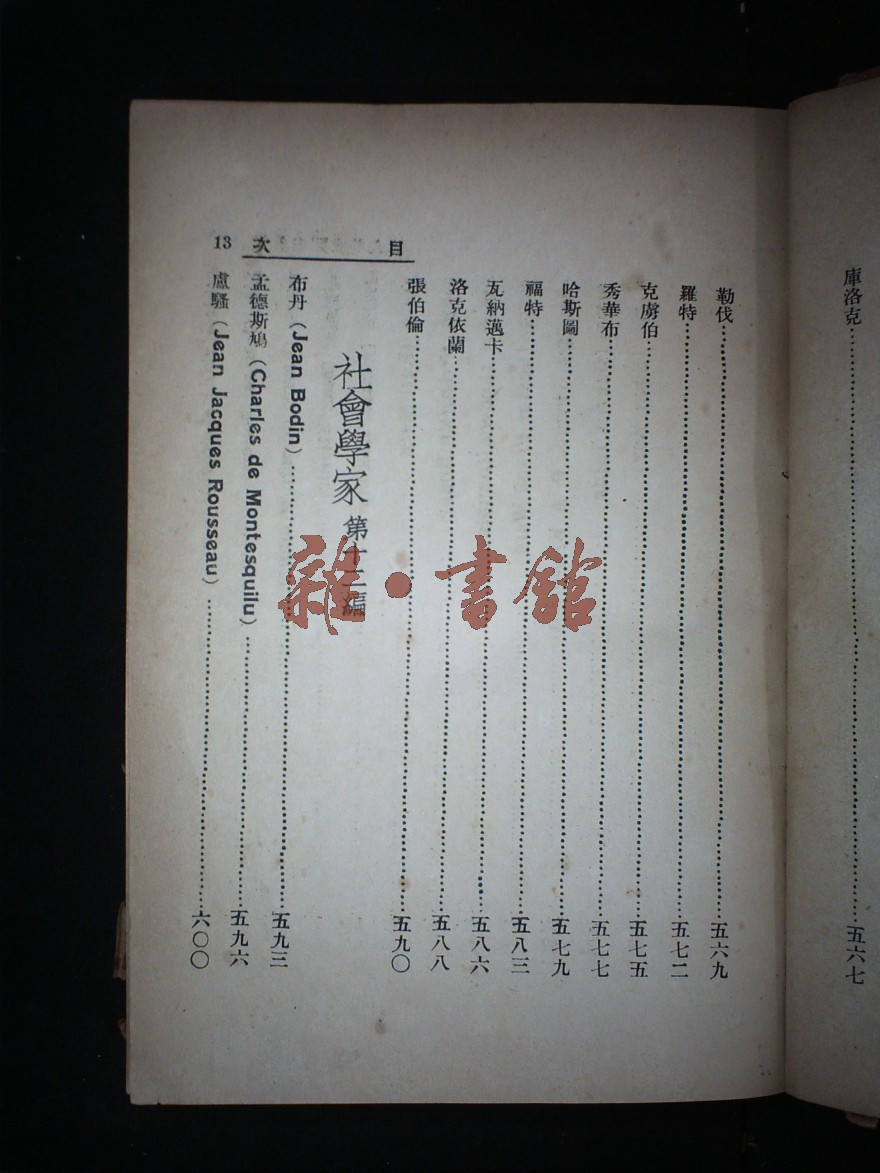 庫洛克……五六七
目 次 13
勒伐……五六九
羅特……五七二
克虜伯……五七五
秀華布……五七七
哈斯圖……五七九
福特……五八三
瓦納邁卡……五八六
洛克依蘭……五八八
張伯倫……五九〇
社會學家 第十二編
布丹（Jean Bodin）……五九三
孟德斯鳩（Charles de Montesquilu）……五九六
盧騷（Jean Jacques Rousseau）……六〇〇
雜·書館